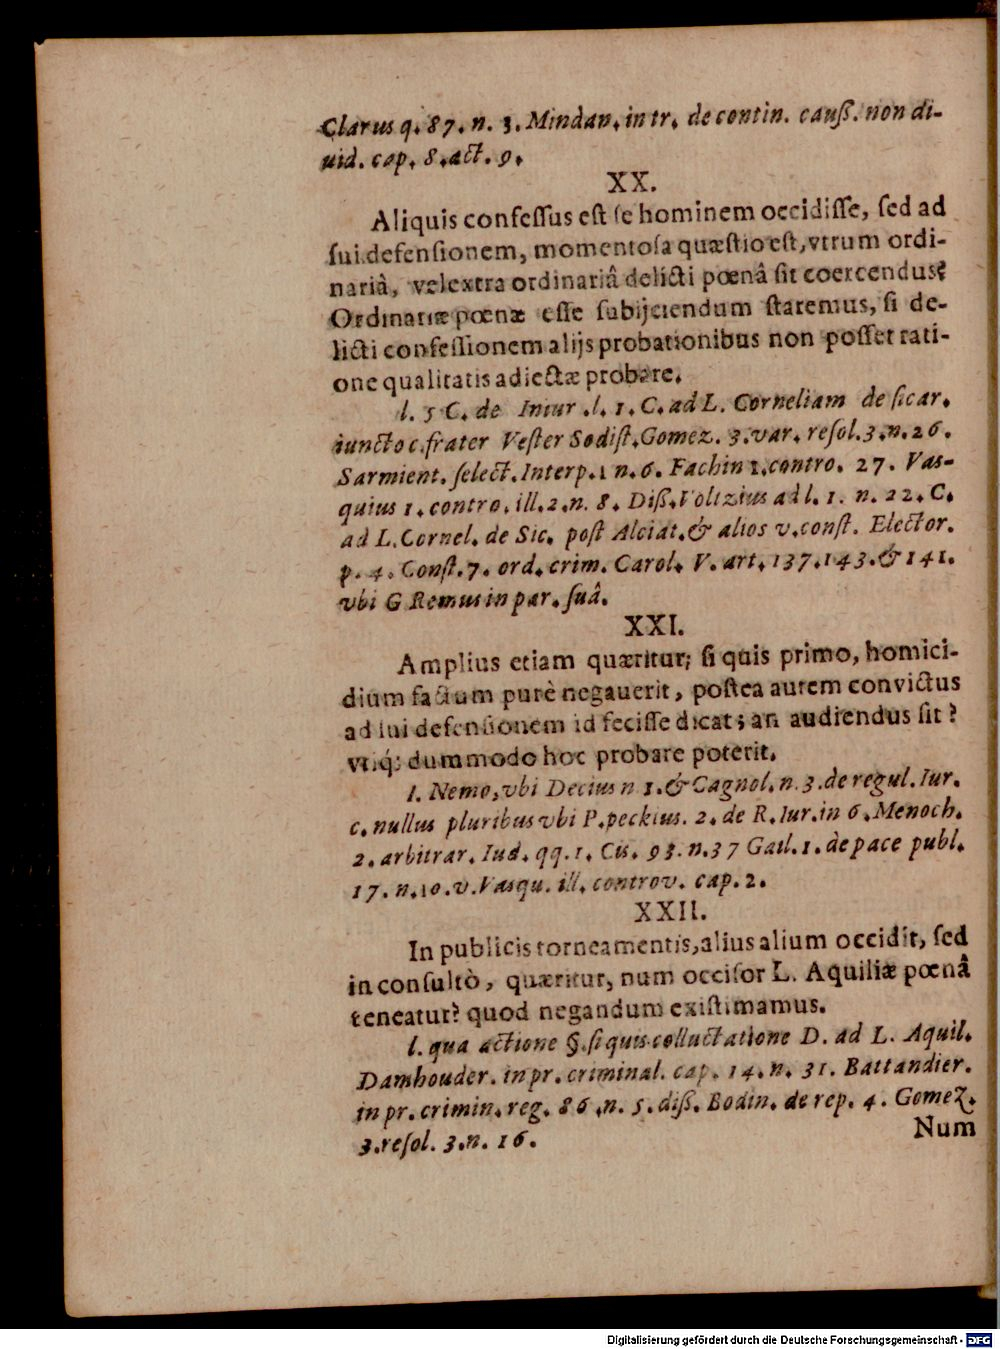 Clarus q. 87. n. 3. Mindan. in tr. de contin. cauß. non di-
uid. cap. 8. act. 9.
XX.
Aliquis confeſſus eſt ſe hominem occidiſſe, ſed ad
ſui defenſionem, momentoſa quæſtio eſt, vtrum ordi-
nariâ, vel extra ordinariâ delicti pœnâ ſit coercendus?
Ordinariæ pœnæ eſſe ſubijciendum ſtaremus, ſi de-
licti confeſſionem alijs probationibus non poſſet rati-
one qualitatis adiectæ probare.
l. 5 C. de Iniur. l. 1. C. ad L. Corneliam de ſicar.
iuncto c. frater Veſter 50 diſt. Gomez. 3. var. reſol. 3. n. 26.
Sarmient. ſelect. Interp. 1 n. 6. Fachin 1. contro. 27. Vas-
quius 1. contro. ill. 2. n. 8. Diß. Voltzius ad l. 1. n. 22. C.
ad L. Cornel. de Sic. poſt Alciat. & alios v. conſt. Elector.
p. 4. Conſt. 7. ord. crim. Carol. V. art. 137. 143. & 141.
vbi G Remus in par. ſuâ.
XXI.
Amplius etiam quæritur; ſi quis primo, homici-
dium factum purè negauerit, poſtea autem convictus
ad ſui defenſionem id feciſſe dicat; an audiendus ſit?
vtiq́; dummodo hoc probare poterit.
l. Nemo, vbi Decius n 1. & Cagnol. n. 3. de regul. Iur.
c. nullus pluribus vbi P. peckius. 2. de R. Iur. in 6. Menoch.
2. arbitrar. Iud. qq. 1. Cas. 93. n. 37 Gail. 1. de pace publ.
17. n. 10. v. Vasqu. ill. controv. cap. 2.
XXII.
In publicis torneamentis, alius alium occidit, ſed
inconſultò, quæritur, num occiſor L. Aquiliæ pœnâ
teneatur? quod negandum exiſtimamus.
l. qua actione §. ſi quis colluctatione D. ad L. Aquil.
Damhouder. in pr. criminal. cap. 14. n. 31. Battandier.
in pr. crimin. reg. 86. n. 5. diß. Bodin. de rep. 4. Gomez.
3. reſol. 3. n. 16.
Num
Digitalisierung gefördert durch die Deutsche Forschungsgemeinschaft - DFG